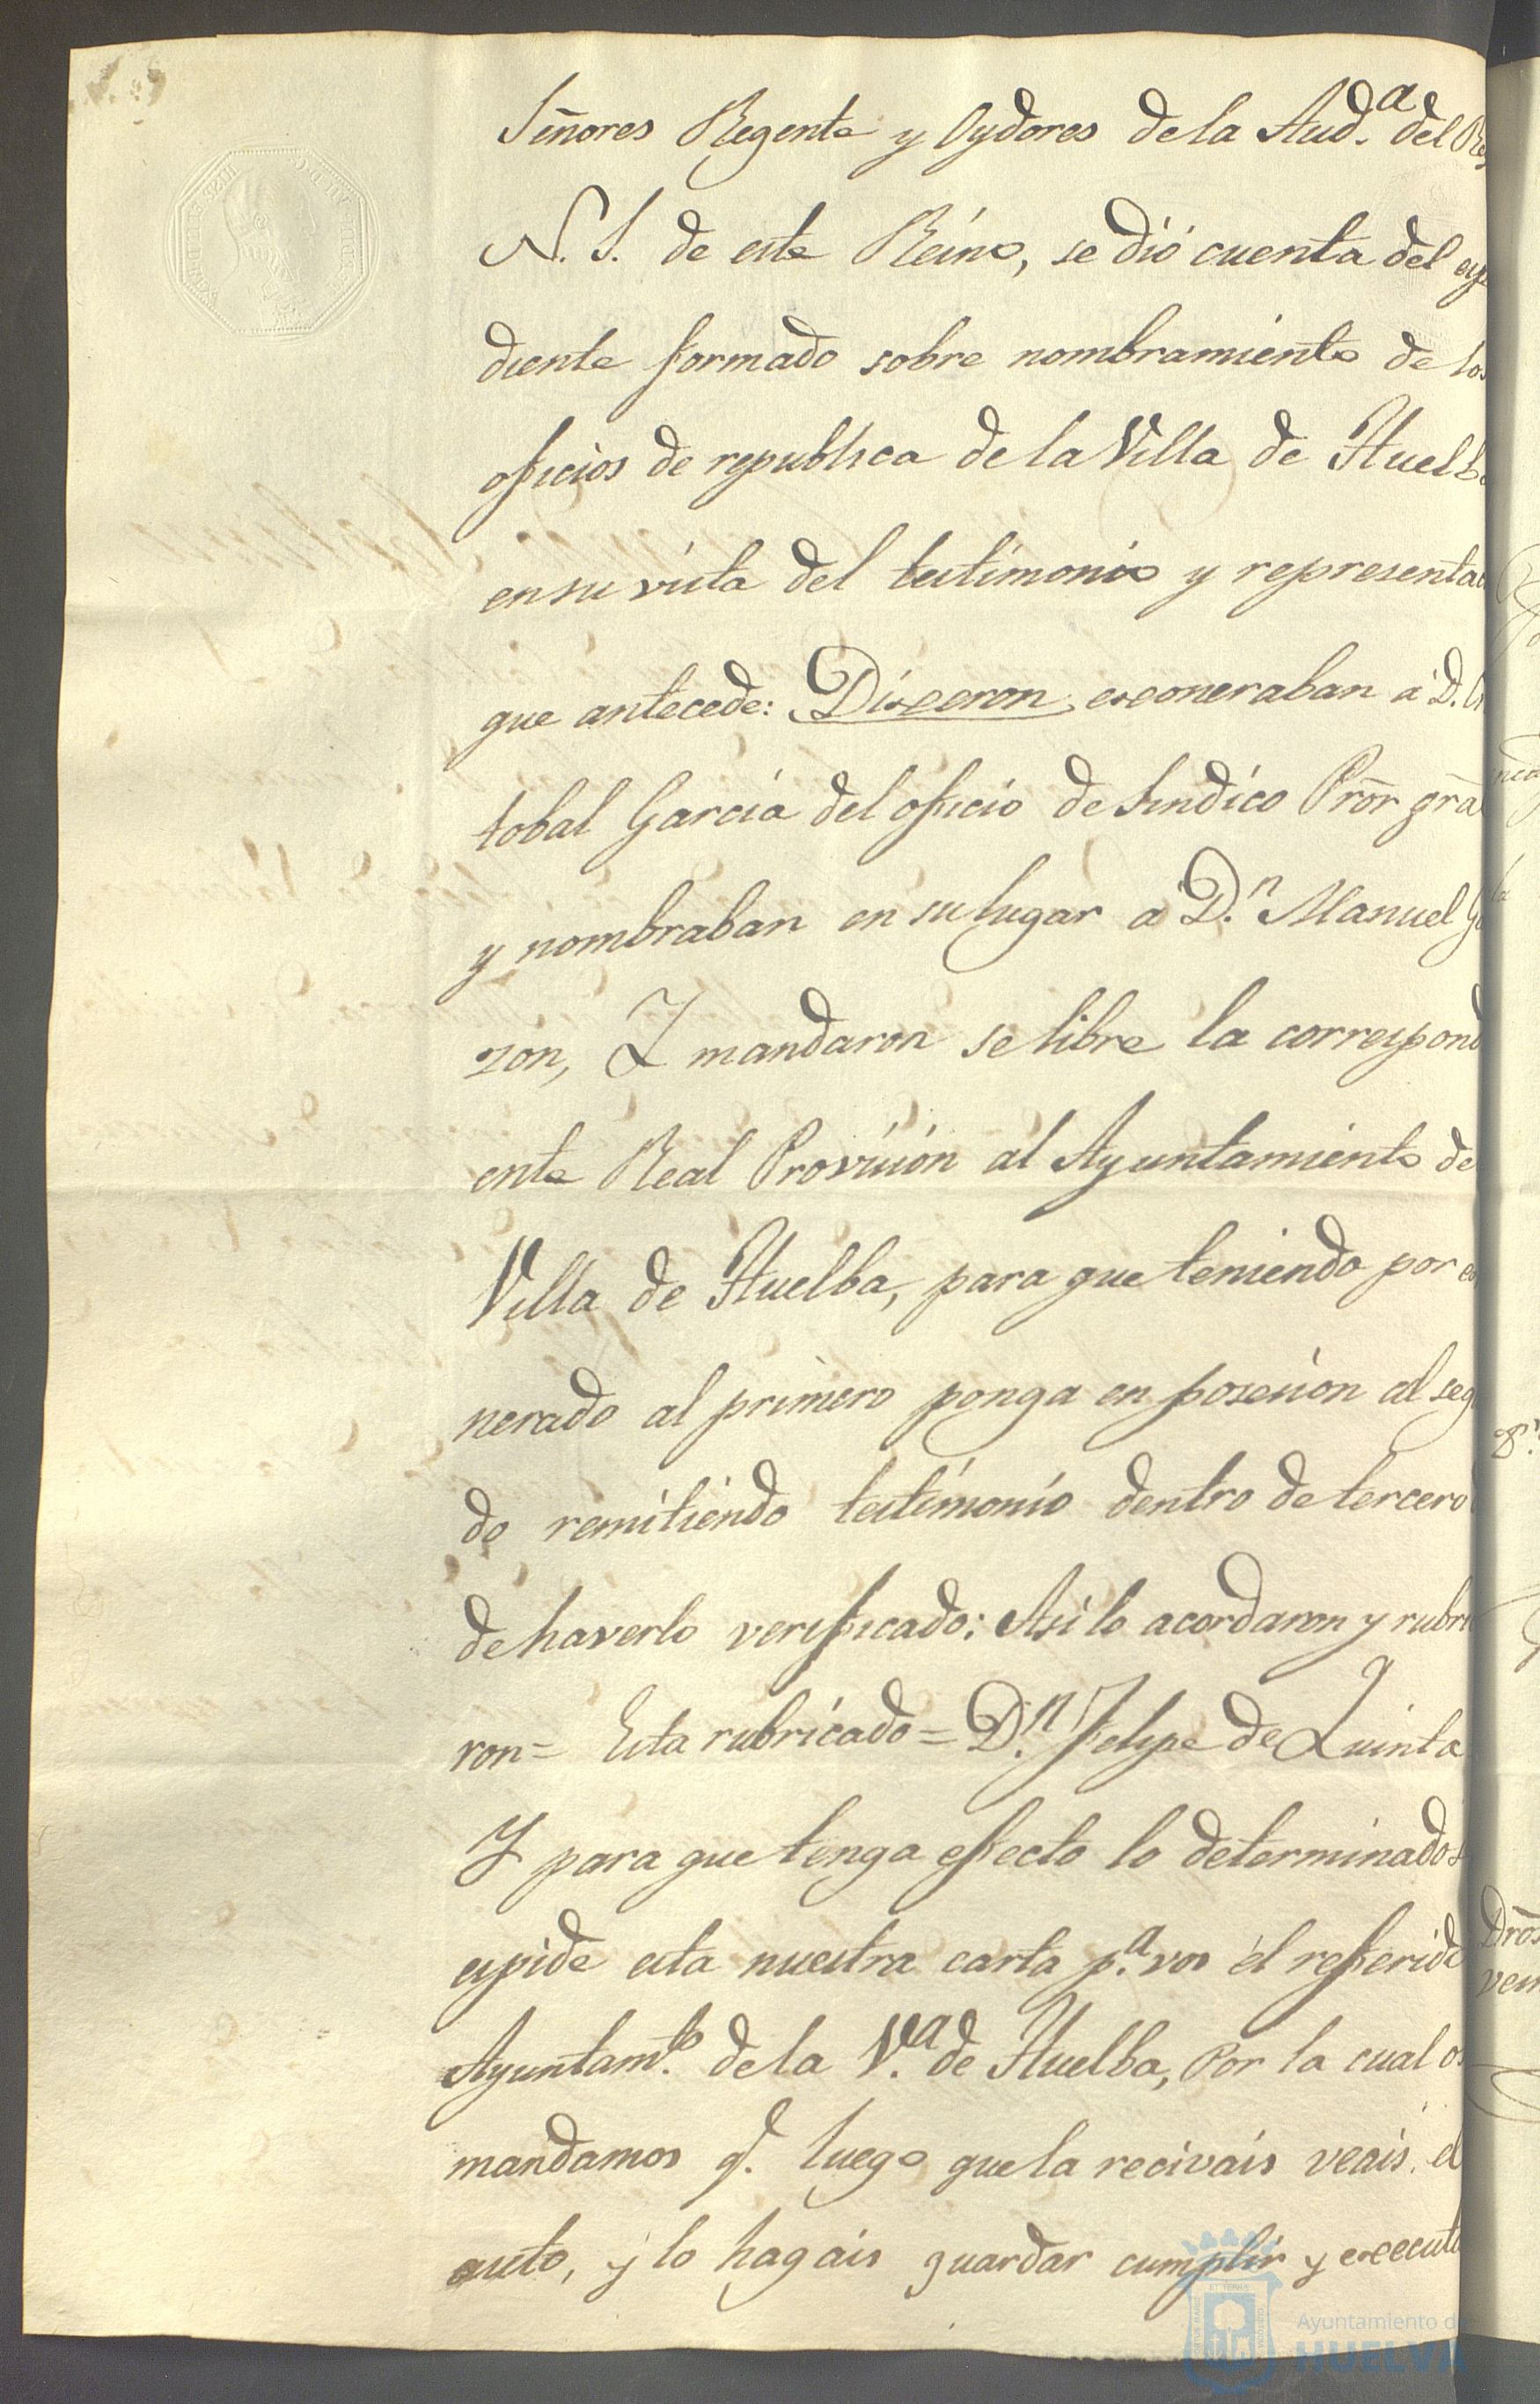 Señores Regente y Oydores de la Aud.ª del Rey
N. S. de este Reino, se dió cuenta del espe
diente formado sobre nombramiento de los
oficios de republica de la Villa de Huelba
en su vista del testimonio y representa
que antecede: Dixeron exoneraban á D. Cr
tobal Garcia del oficio de Sindico Prõr grãl
y nombraban en su lugar á D.ⁿ Manuel
zon, Y mandaron se libre la correspond
ente Real Provision al Ayuntamiento de
Villa de Huelba, para que teniendo por
nerado al primero ponga en posesion al seg
do remitiendo testimonio dentro de tercero
de haverlo verificado: Asi lo acordaron y rubri
ron= Esta rubricado= D.ⁿ Felipe de Quinta
Y para que tenga efecto lo determinado
espide esta nuestra carta p.ª vos él referido
Ayuntam.ᵗᵒ de la V.ª de Huelba, Por la cual os
mandamos q. luego que la recivais veais el
auto, y lo hagais guardar cumplir y executa
Ayuntamiento de
HUELVA